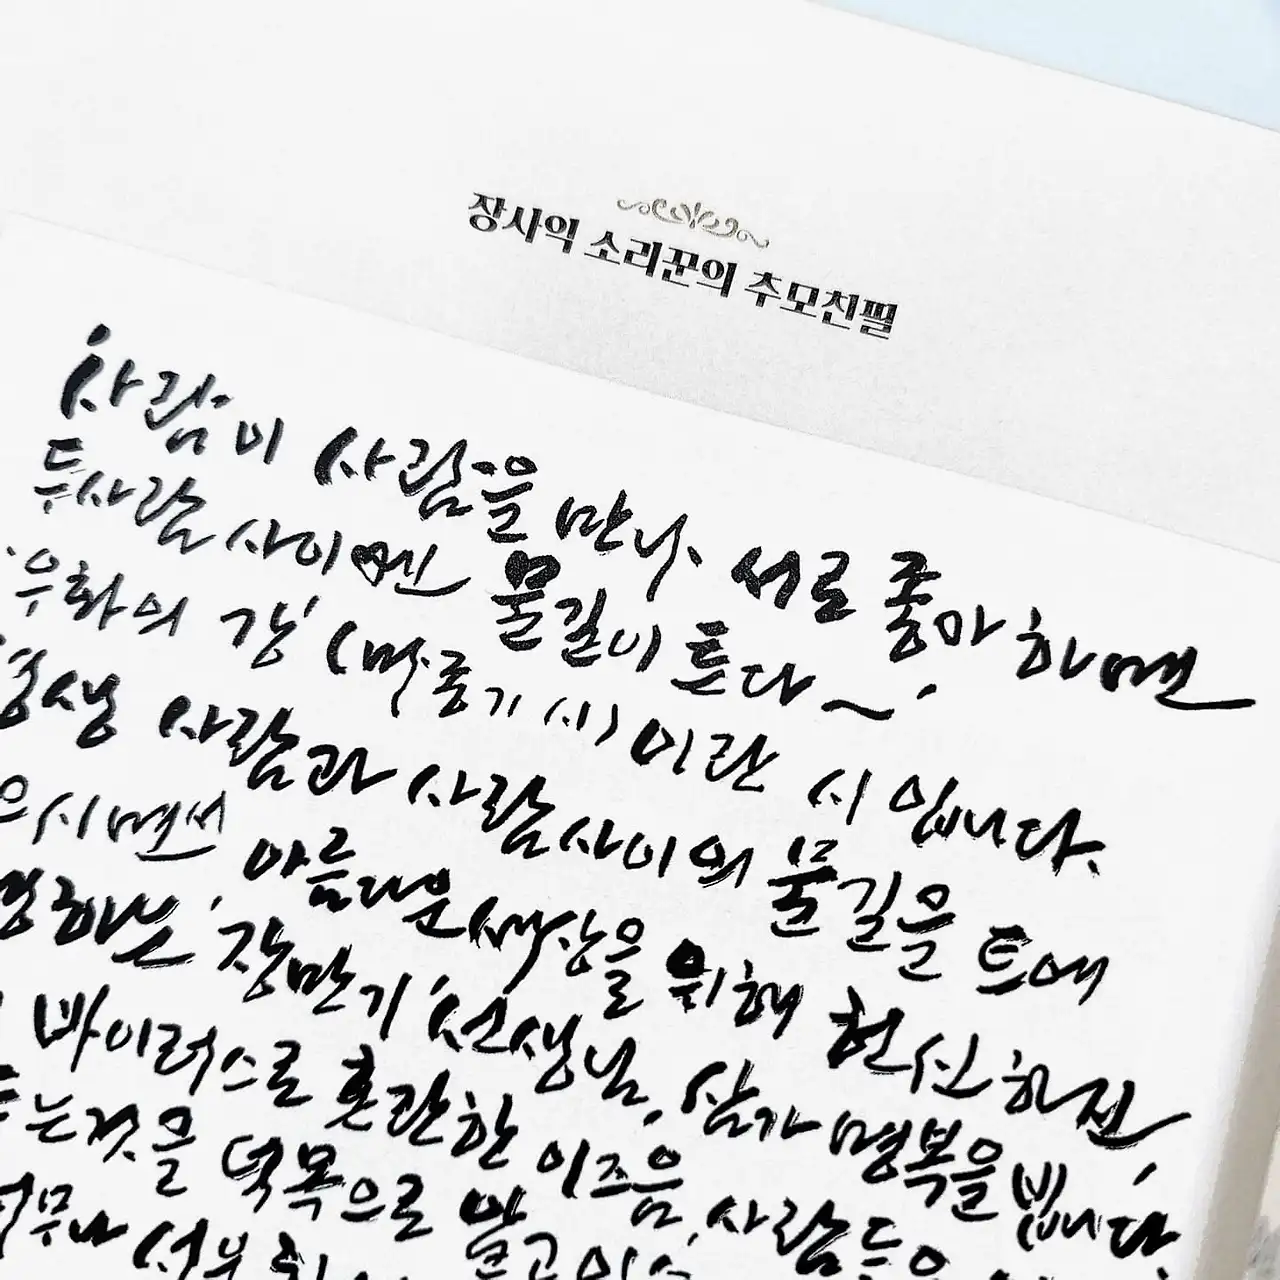 장사익 소리꾼의 추모친필
사람이 사람을 만나 서로 좋아하면
두사람 사이엔 물길이 튼다~
우화의 강' (마종기 시) 이란 시 입니다.
평생 사람과 사람사이의 물길을 트에
으시면서 아름다운 세상을 위해 헌신하신
하는 장만기 선생님, 삼가 명복을 빕니다.
바이러스로 혼란한 이즈음, 사람들은
는것을 덕목으로 알고